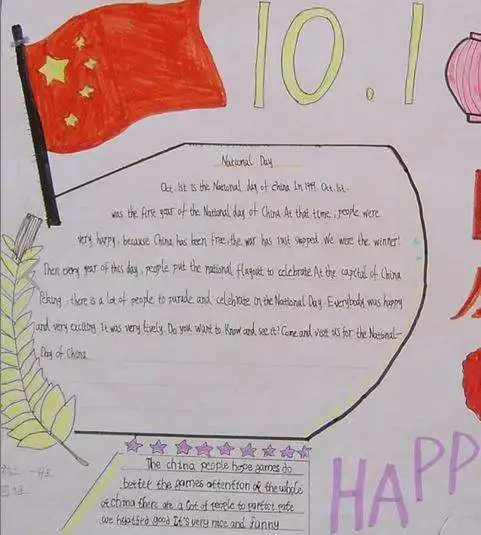 10.1
National Day
Oct. 1st is the National day of china In 1949. Oct. 1st.
was the first year of the National day of China At that time, people were
very happy, because China has been free, the war has just stopped. We were the winner!
Then every year of this day, people put the national flagout to celebrate At the capital of China
Peking, there is a lot of people to parade and celebrate on the National Day. Everybody was happy
and very exciting. It was very lively. Do you want to know and see it? Come and visit us for the National-
Day of China
The china people hope games do
better the games attention of the whole
of china there are a lot of people to parfect
we good It's very nice and funny
HAPP